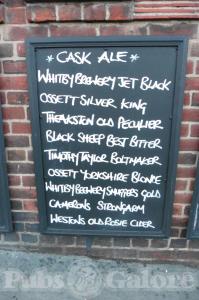 * CASK ALE *
WHITBY BREWERY JET BLACK
OSSETT SILVER KING
THEAKSTON OLD PECULIER
BLACK SHEEP BEST BITTER
TIMOTHY TAYLOR BOLTMAKER
OSSETT YORKSHIRE BLONDE
WHITBY BREWERY SMUGGLERS GOLD
CAMERONS STRONGARM
WESTONS OLD ROSIE CIDER
Pubs Galore